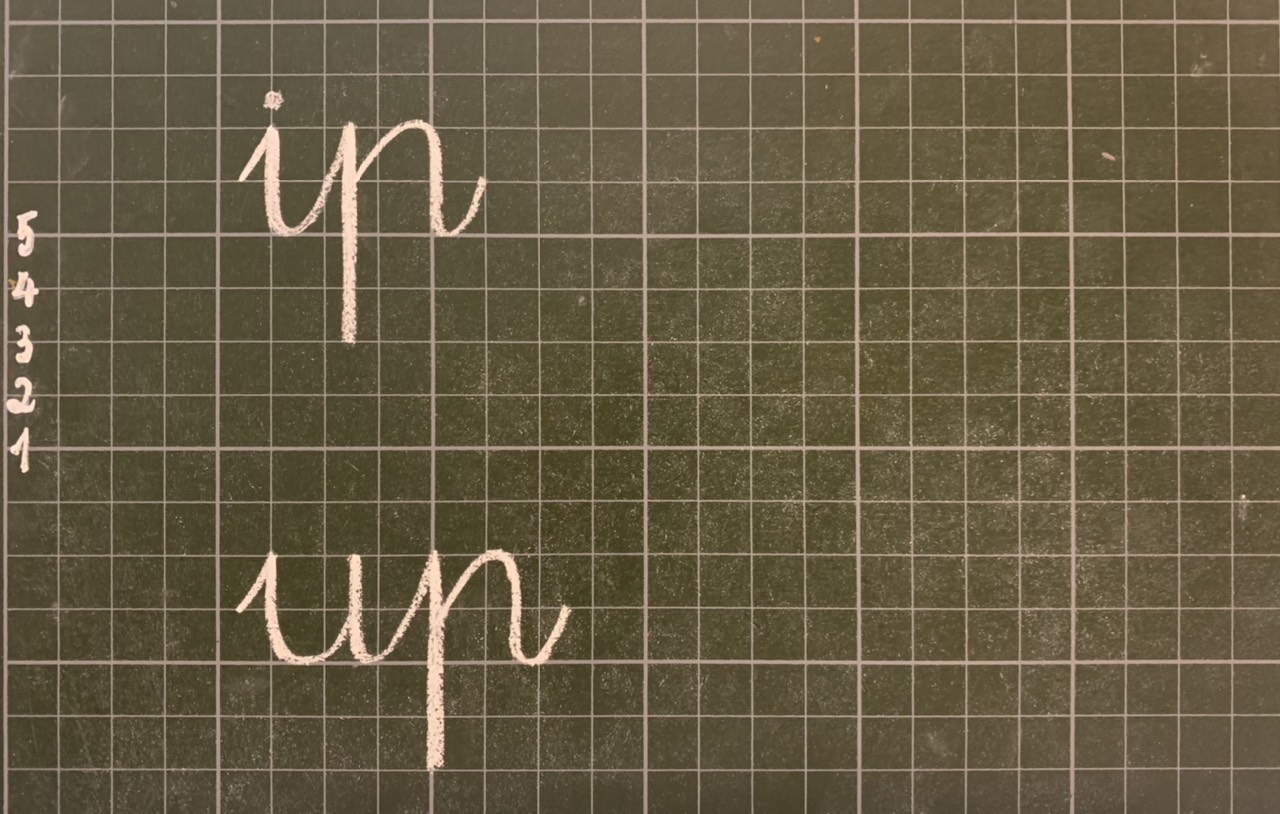 ip
5
4
3
2
1
up